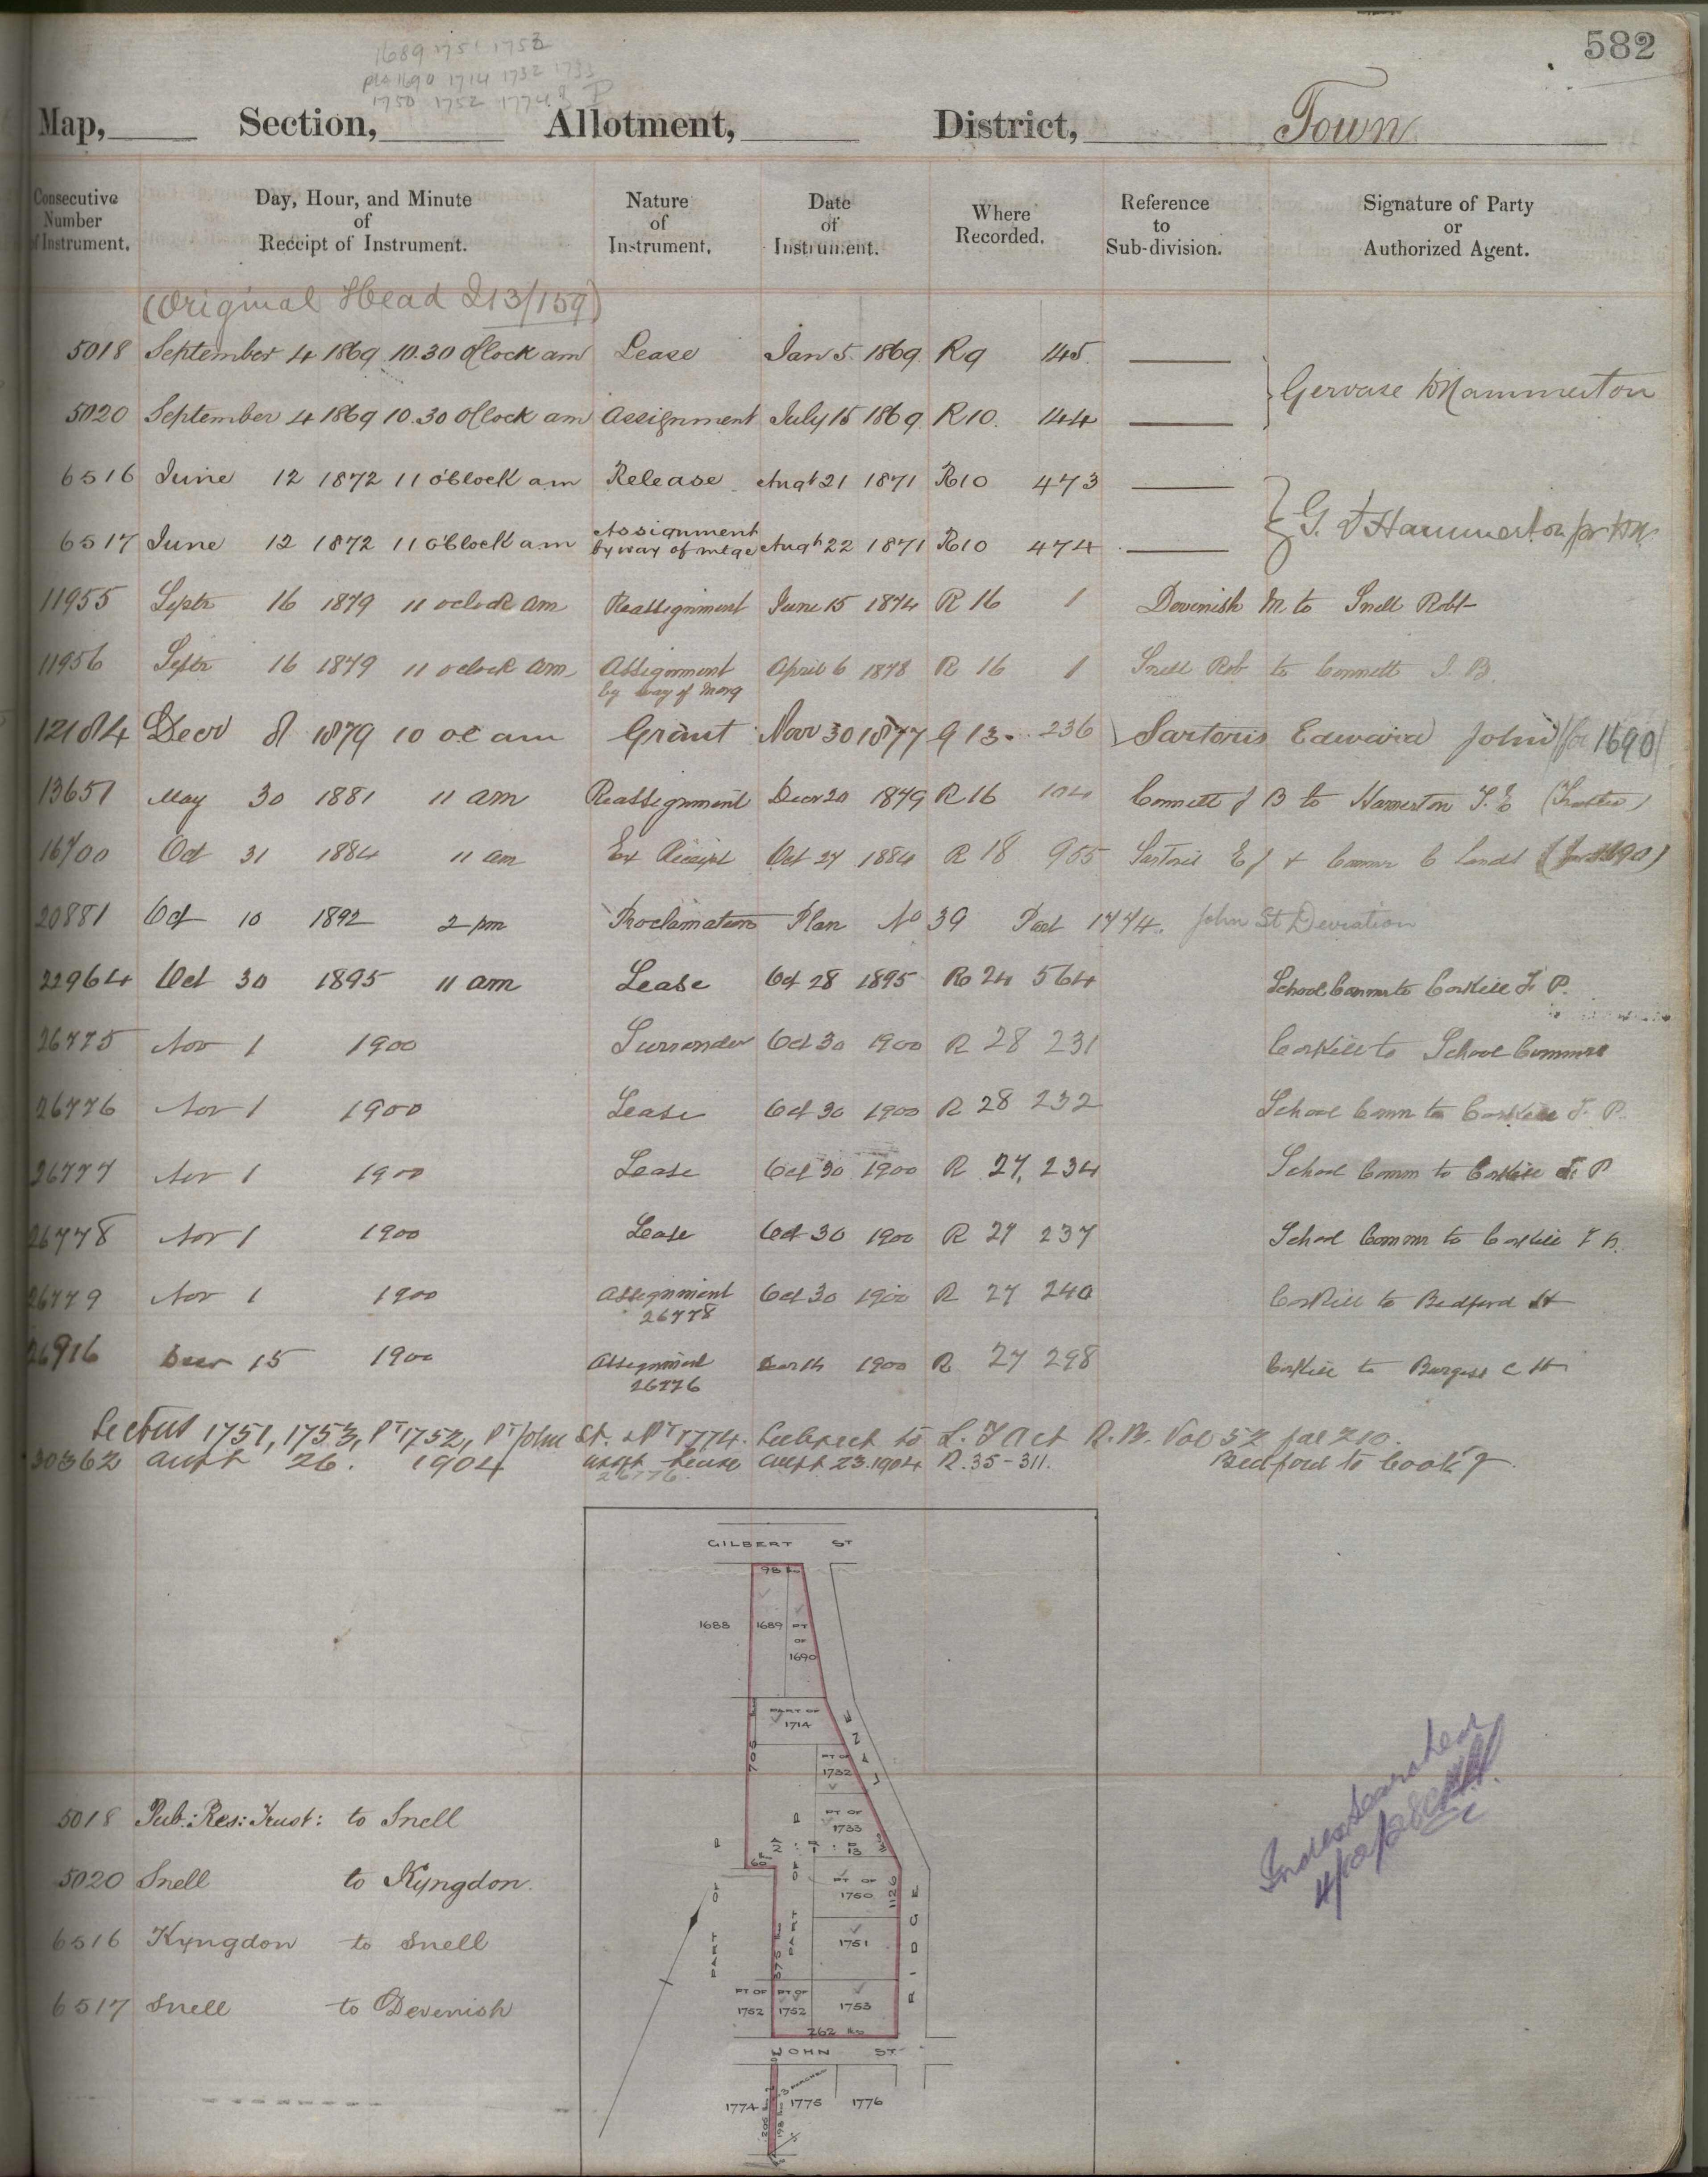 582
1689 1751 1753
pts 1690 1714 1732 1733
1750 1752 1774
Map, Section, Allotment, District, Town
Consecutive Number of Instrument. Day, Hour, and Minute of Receipt of Instrument. Nature of Instrument. Date of Instrument. Where Recorded. Reference to Sub-division. Signature of Party or Authorized Agent.
(Original Head I13/159)
5018 September 4 1869 10.30 Oclock am Lease Jan 5 1869 R9 145
Gervase Hammerton
5020 September 4 1869 10.30 Oclock am Assignment July 15 1869 R10. 144
6516 June 12 1872 11 o'Clock am Release Augt 21 1871 R10 473
G. Hammerton
6517 June 12 1872 11 o'Clock am Assignment by way of mtge Augt 22 1871 R10 474
11955 Septr 16 1879 11 oclock am Reassignment June 15 1874 R 16 1 Devenish M. to Snell Robt
11956 Septr 16 1879 11 oclock am Assignment by way of Morg April 6 1878 R 16 1 Snell Rob to Connett J. B.
12184 Decr 8 1879 10 oc am Grant Novr 30 1877 G 13. 236 Sartoris Edward John (for 1690)
13651 May 30 1881 11 am Reassignment Decr 20 1879 R 16 104 Connett J B to (Trustee)
16700 Oct 31 1884 11 am Ex Receipt Oct 27 1884 R 18 955 Sartoris E J & Commr C Lands (for 1690)
20881 Oct 10 1892 2 pm Proclamation Plan No 39 Part 1774. John St Deviation
22964 Oct 30 1895 11 am Lease Oct 28 1895 R 24 564 School Commrs to Corkill F. P.
26775 Nov 1 1900 Surrender Oct 30 1900 R 28 231 Corkill to School Commrs
26776 Nov 1 1900 Lease Oct 30 1900 R 28 232 School Comm to Corkill F. P.
26777 Nov 1 1900 Lease Oct 30 1900 R 27, 234 School Comm to Corkill F. P
26778 Nov 1 1900 Lease Oct 30 1900 R 27 237 School Commr to Corkill F P.
26779 Nov 1 1900 Assignment 26778 Oct 30 1900 R 27 240 Corkill to Bedford H
26916 Decr 15 1900 Assignment 26776 Decr 14 1900 R 27 298 Corkill to Burgess C H
Sections 1751, 1753, Pt 1752, Pt John St. & Pt 1774. Subject to L. T Act R. B. Vol 52 fol 210.
30362 Augt 26. 1904 Assgt Lease 26776. Augt 23. 1904 R. 35-311. Bedford to Cook J
GILBERT ST
98 lks
1688 1689 PT OF 1690
PART OF 1714
705 lks
PT OF 1732
LANE
PT OF 1733
60
PT OF 1750
1126
PART OF
375 lks
PART
1751
RIDGE
PT OF 1752 PT OF 1752 1753
262 lks
JOHN ST
1774 1775 1776
205 lks
198 lks
5018 Pub: Res: Trust: to Snell
5020 Snell to Kyngdon.
6516 Kyngdon to Snell
6517 Snell to Devenish
Index Searched
4/12/28